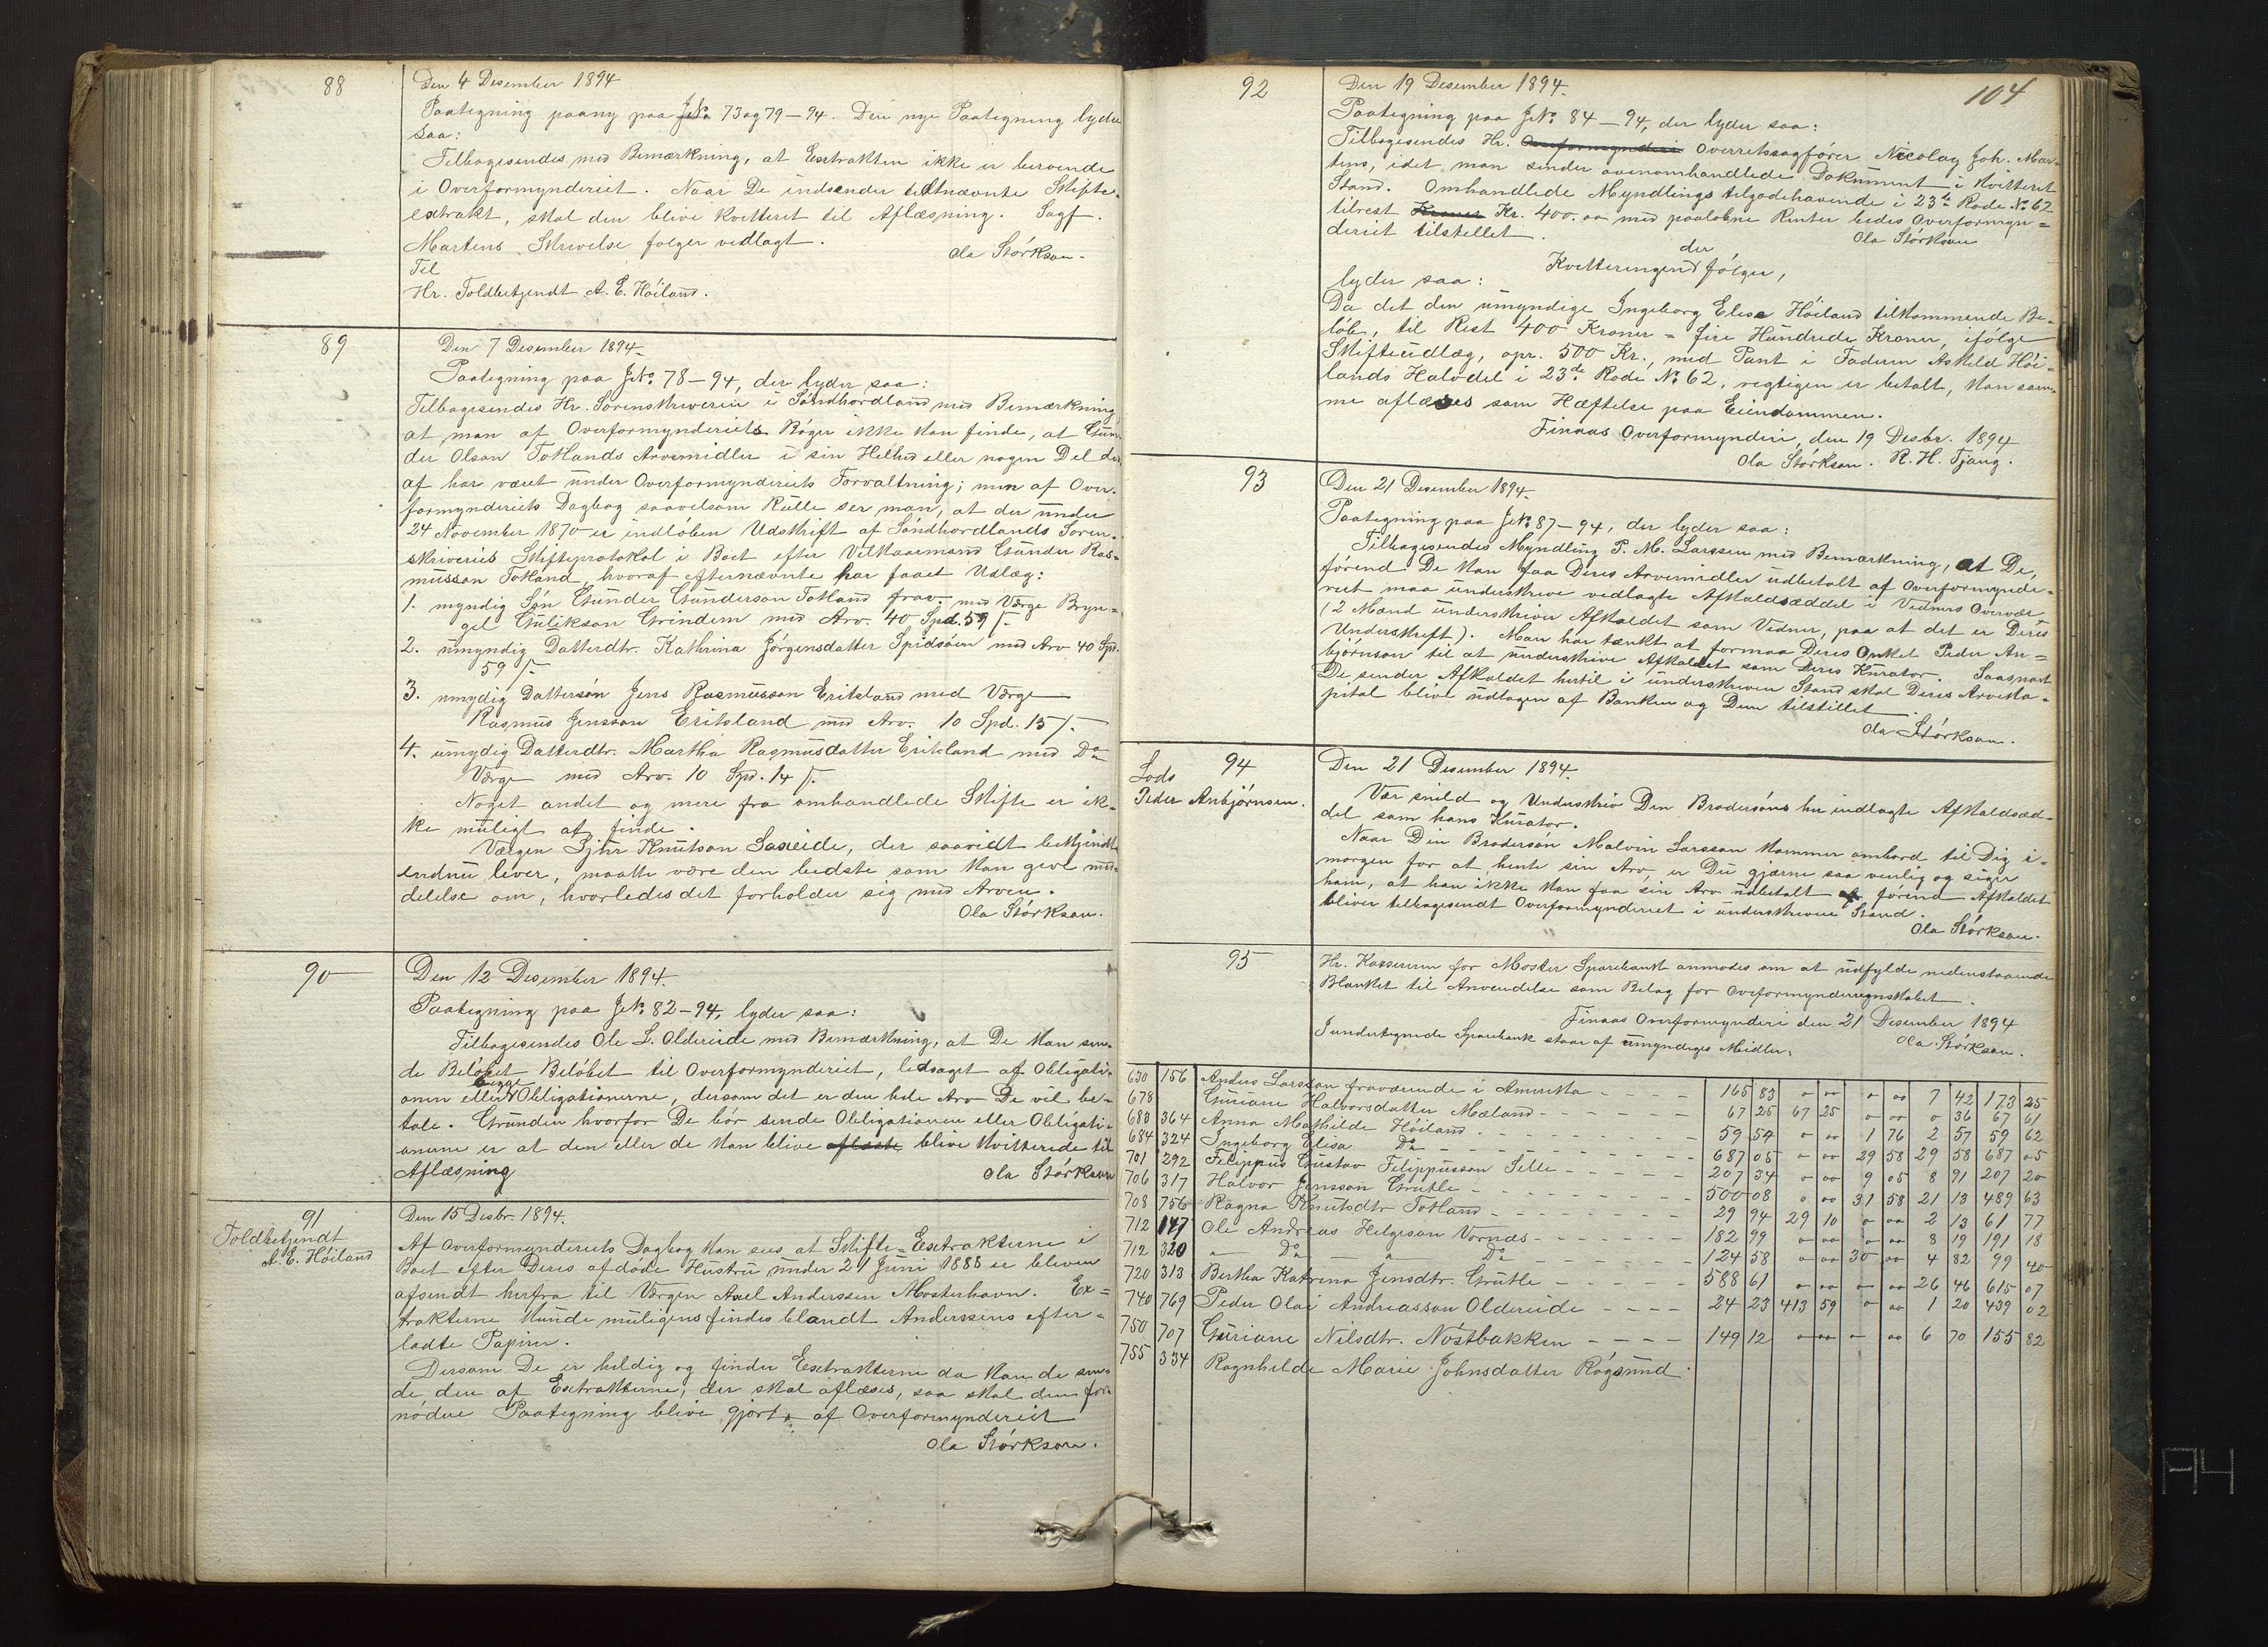 88
Den 4 Desember 1894
Paategning paany paa JNo. 73 og 79–94. Den nye Paategning lyder
saa:
Tilbagesendes med Bemærkning, at Extrakten ikke er beroende
i Overformynderiet. Naar De indsender sidstnævnte Skifte-
extrakt, skal den blive kvitteret til Aflæsning. Sagf.
Martens Skrivelse følger vedlagt.
Ola Størkson.
Til
Hr. Toldbetjendt A. E. Høiland.
89
Den 7 Desember 1894.
Paategning paa JNo. 78–94, der lyder saa:
Tilbagesendes Hr. Sorenskriveren i Søndhordland med Bemærkning
at man af Overformynderiets Bøger ikke kan finde, at Gun-
der Olson Totlands Arvemidler i sin Helhed eller nogen Del der
af har været under Overformynderiets Forvaltning; men af Over-
formynderiets Dagbog saavelsom Rulle ser man, at der under
24 November 1870 er indløben Udskrift af Søndhordlands Soren-
skriveris Skifteprotokol i Boet efter Velkaarmand Gunder Ras-
musson Totland, hvoraf efternævnte har faaet Udlæg:
1. myndig Søn Gunder Gunderson Totland frav. med Værge Bryn=
gel Guleikson Grindem med Arv. 40 Spd. 59 /-
2. umyndig Datterdtr. Kathrina Jørgensdatter Spidsøen med Arv 40 Spd.
59 /-
3. umydig Dattersøn Jens Rasmusson Eritsland med Værge
Rasmus Jensson Eritsland med Arv. 10 Spd. 15 /-
4. umydig Datterdtr. Martha Rasmusdatter Eritsland med Do
Værge med Arv. 10 Spd. 14 /-
Noget andet og mere fra omhandlede Skifte er ik-
ke muligt at finde.
Værgen Sjur Knutson Saxeide, der saavidt bekjendt
endnu lever, maatte være den bedste som kan give med-
delelse om, hvorledes det forholder sig med Arven.
Ola Størkson.
90
Den 12 Desember 1894.
Paategning paa JNo. 82–94, lyder saa:
Tilbagesendes Ole L. Oldereide med Bemærkning, at De kan sen-
de Beløbet Beløbet til Overformynderiet, ledsaget af Obligati-
onen eller begge Obligationerne, dersom det er den hele Arv De vil be-
tale. Grunden hvorfor De bør sende Obligationen eller Obligati-
onerne er at den eller de kan blive aflæste blive kvitterede til
Aflæsning
Ola Størkson
91
Toldbetjendt
A. E. Høiland
Den 15 Desbr. 1894.
Af Overformynderiets Dagbog kan sees at Skifte-Extrakterne i
Boet efter Deres afdøde Hustru under 21 Juni 1888 er bleven
afsendt herfra til Værgen Axel Anderssen Mosterhavn. Ex=
trakterne kunde muligens findes blandt Anderssens efter-
ladte Papirer.
Dersom De er heldig og finder Extrakterne da kan de sen-
de den af Extrakterne, der skal aflæses, saa skal den for-
nødne Paategning blive gjort af Overformynderiet
Ola Størkson.
104
92
Den 19 Desember 1894.
Paategning paa JNo. 84–94, der lyder saa:
Tilbagesendes Hr. Overformynderi Overretssagfører Nicolay Joh. Mar-
tens, idet man sender ovenomhandlede Dokument i kvitteret
Stand. Omhandlede Myndlings tilgodehavende i 23de Rode No. 62
tilrest Kroner Kr. 400.00 med paaløbne Renter bedes Overformyn=
deriet tilstillet.
Ola Størkson
Kvitteringen der følger,
lyder saa:
Da det den umyndige Ingeborg Elisa Høiland tilkommende Be-
løb, til Rest 400 Kroner = fire Hundrede Kroner, ifølge
Skifteudlæg, opr. 500 Kr., med Pant i Faderen Askild Høi-
lands Halvdel i 23de Rode No. 62, regtigen er betalt, kan sam-
me aflæses som Hæftelse paa Eiendommen.
Finaas Overformynderi, den 19 Desbr. 1894
Ola Størkson. R. H. Tjang.
93
Den 21 Desember 1894.
Paategning paa JNo. 87–94, der lyder saa:
Tilbagesendes Myndling P. M. Larssen med Bemærkning, at De,
førend De kan faa Deres Arvemidler udbetalt af Overformynde-
riet maa underskrive vedlagte Afkaldsæddel i Vidners Overvær
(2 Mænd underskriver Afkaldet som Vidner, paa at det er Deres
Underskrift). Man har tænkt at formaa Deres Onkel Peder An=
bjørnson til at underskrive Afkaldet som Deres Kurator. Saasnart
De sender Afkaldet hertil i underskreven Stand skal Deres Arveka-
pital blive udtagen af Banken og Dem tilstillet.
Ola Størkson.
94
Lods
Peder Anbjørnsen.
Den 21 Desember 1894.
Vær snild og Underskriv Din Brodersøns her indlagte Afkaldsæd-
del som hans Kurator.
Naar Din Brodersøn Malvin Larsson kommer ombord til Dig i-
morgen for at hente sin Arv er Du gjærne saa venlig og siger
ham, at han ikke kan faa sin Arv udbetalt førend Afkaldet
bliver tilbagesendt Overformynderiet i underskreven Stand.
Ola Størkson.
95
Hr. Kassereren for Moster Sparebank anmodes om at udfylde nedenstaaende
Blanket til Anvendelse som Bilag for Overformynderregnskabet.
Finaas Overformynderi den 21 Desember 1894
Ola Størkson.
I undertegnede Sparebank staar af umyndiges Midler:
630 156 Anders Larsson fraværende i Amerika - - - - 165 83 0 00 0 00 7 42 173 25
678 Guriane Halvorsdatter Mæland - - - - 67 25 67 25 0 00 0 36 67 61
680 364 Anna Mathilde Høiland - - - - 59 54 0 00 1 76 2 57 59 62
684 324 Ingeborg Elisa Do - - - - 687 05 0 00 29 58 29 58 687 05
701 292 Filippus Gustav Filippusson Selle - - - - 207 34 0 00 9 05 8 91 207 20
706 317 Halvor Jensson Grutle - - - - 500 08 0 00 31 58 21 13 489 63
708 756 Ragna Knutsdtr Totland - - - - 29 94 29 10 0 00 2 13 61 77
712 147 Ole Andreas Helgeson Vornæs - - - - 182 99 0 00 0 00 8 19 191 18
712 320 " Do " Do 124 58 0 00 30 00 4 82 99 40
720 313 Bertha Katrina Jensdtr. Grutle - - - - 588 61 0 00 0 00 26 46 615 07
740 769 Peder Olai Andreasson Oldereide - - - - 24 23 413 59 0 00 1 20 439 02
750 707 Guriane Nilsdtr. Nøstbakken - - - - 149 12 0 00 0 00 6 70 155 82
755 334 Ragnhilde Marie Johnsdatter Røgsund.